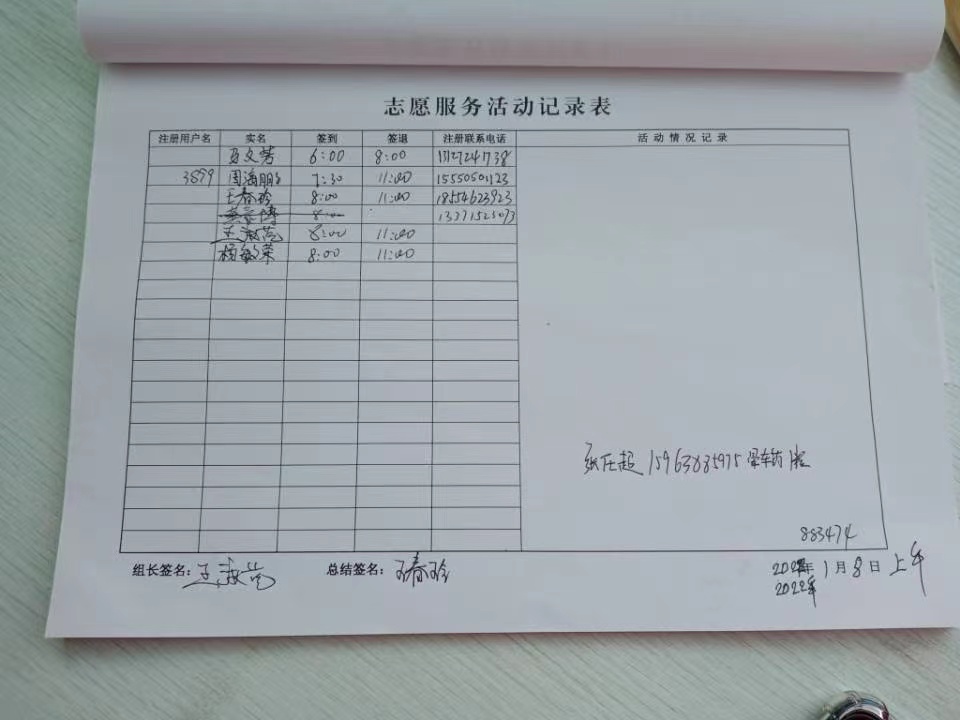 志愿服务活动记录表
注册用户名 实名 签到 签退 注册联系电话 活动情况记录
文芳 6:00 8:00
3899 周海鹏 7:30 11:00 15550501123
王春玲 8:00 11:00 18554623923
8:00
王淑 8:00 11:00
杨敏荣 8:00 11:00
张任超 15963835975 晕车药1
883474
组长签名：王淑 总结签名：王春玲
年1月8日 上午
2022年